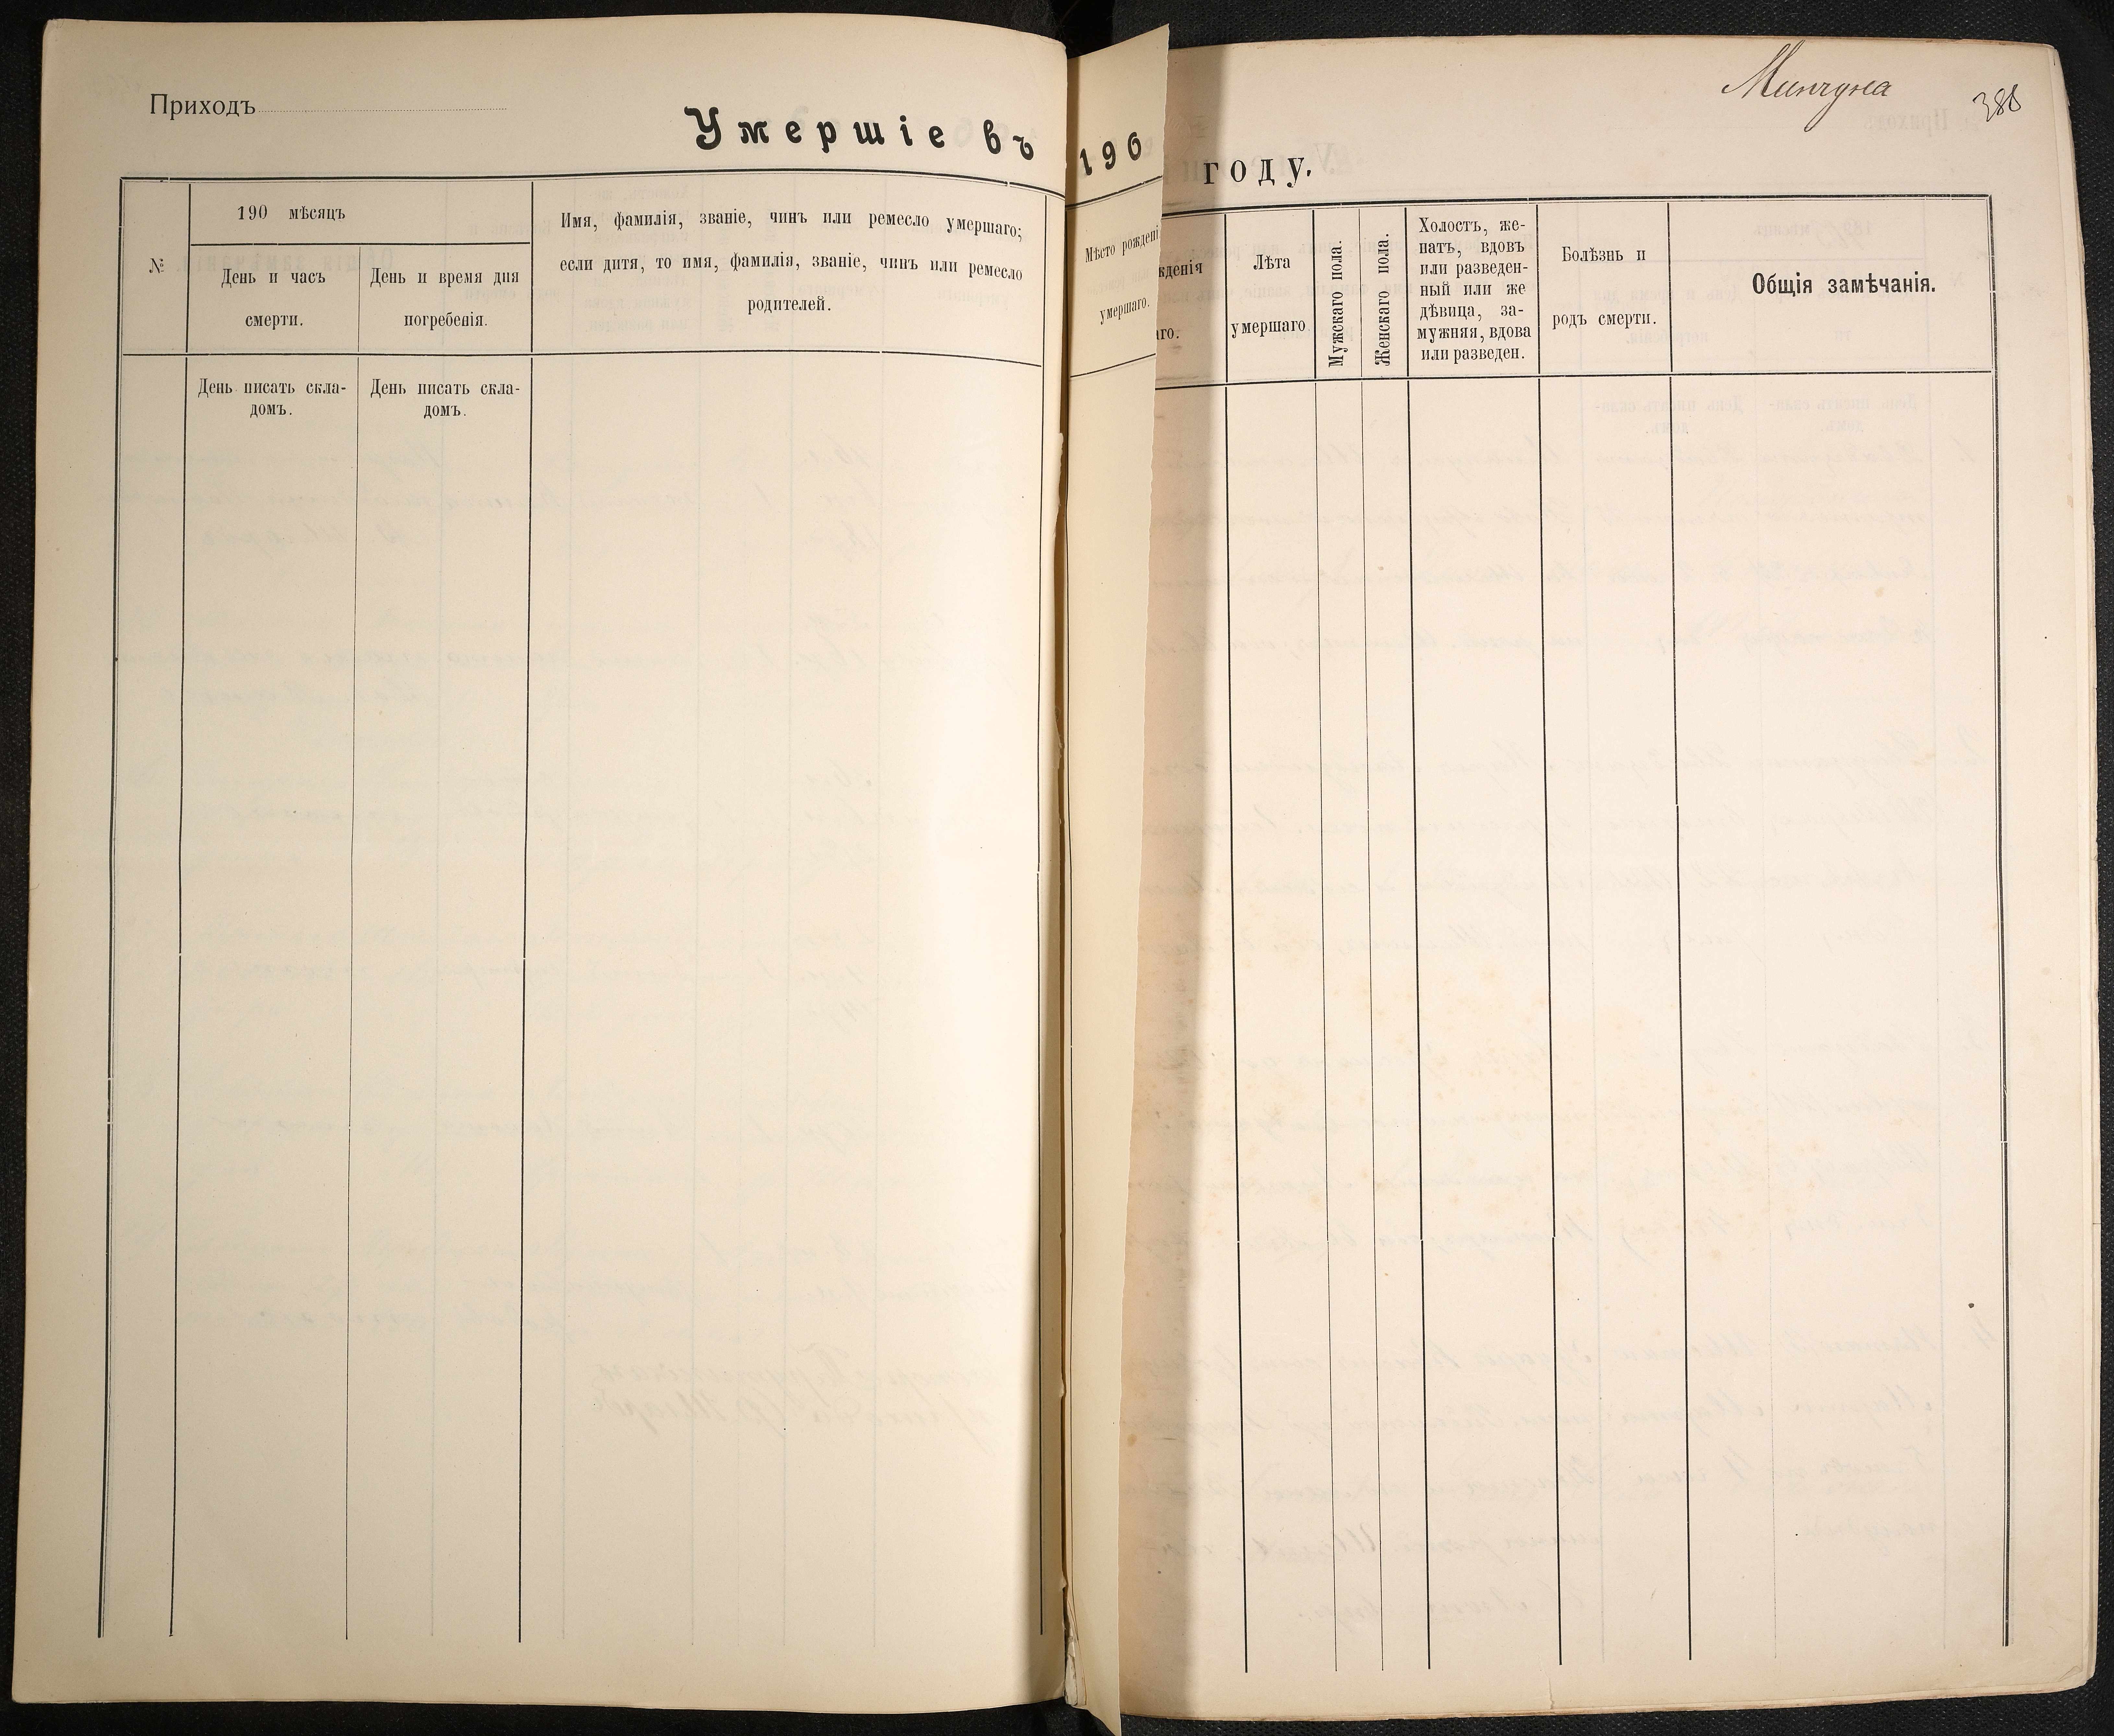 Приходъ
Умершіе въ
№
190 мѣсяцъ
День и часъ
смерти.
День и время дня
погребенія.
Имя, фамилія, званіе, чинъ или ремесло умершаго;
если дитя, то имя, фамилія, званіе, чинъ или ремесло
родителей.
День писать скла-
домъ.
День писать скла-
домъ.
190
Мѣсто рождені
умершаго.
388
году.
жденія
аго.
Лѣта
умершаго
Мужскаго пола.
Женскаго пола.
Холостъ, же-
натъ, вдовъ
или разведен-
ный или же
дѣвица, за-
мужняя, вдова
или разведен.
Болѣзнь и
родъ смерти.
Общія замѣчанія.